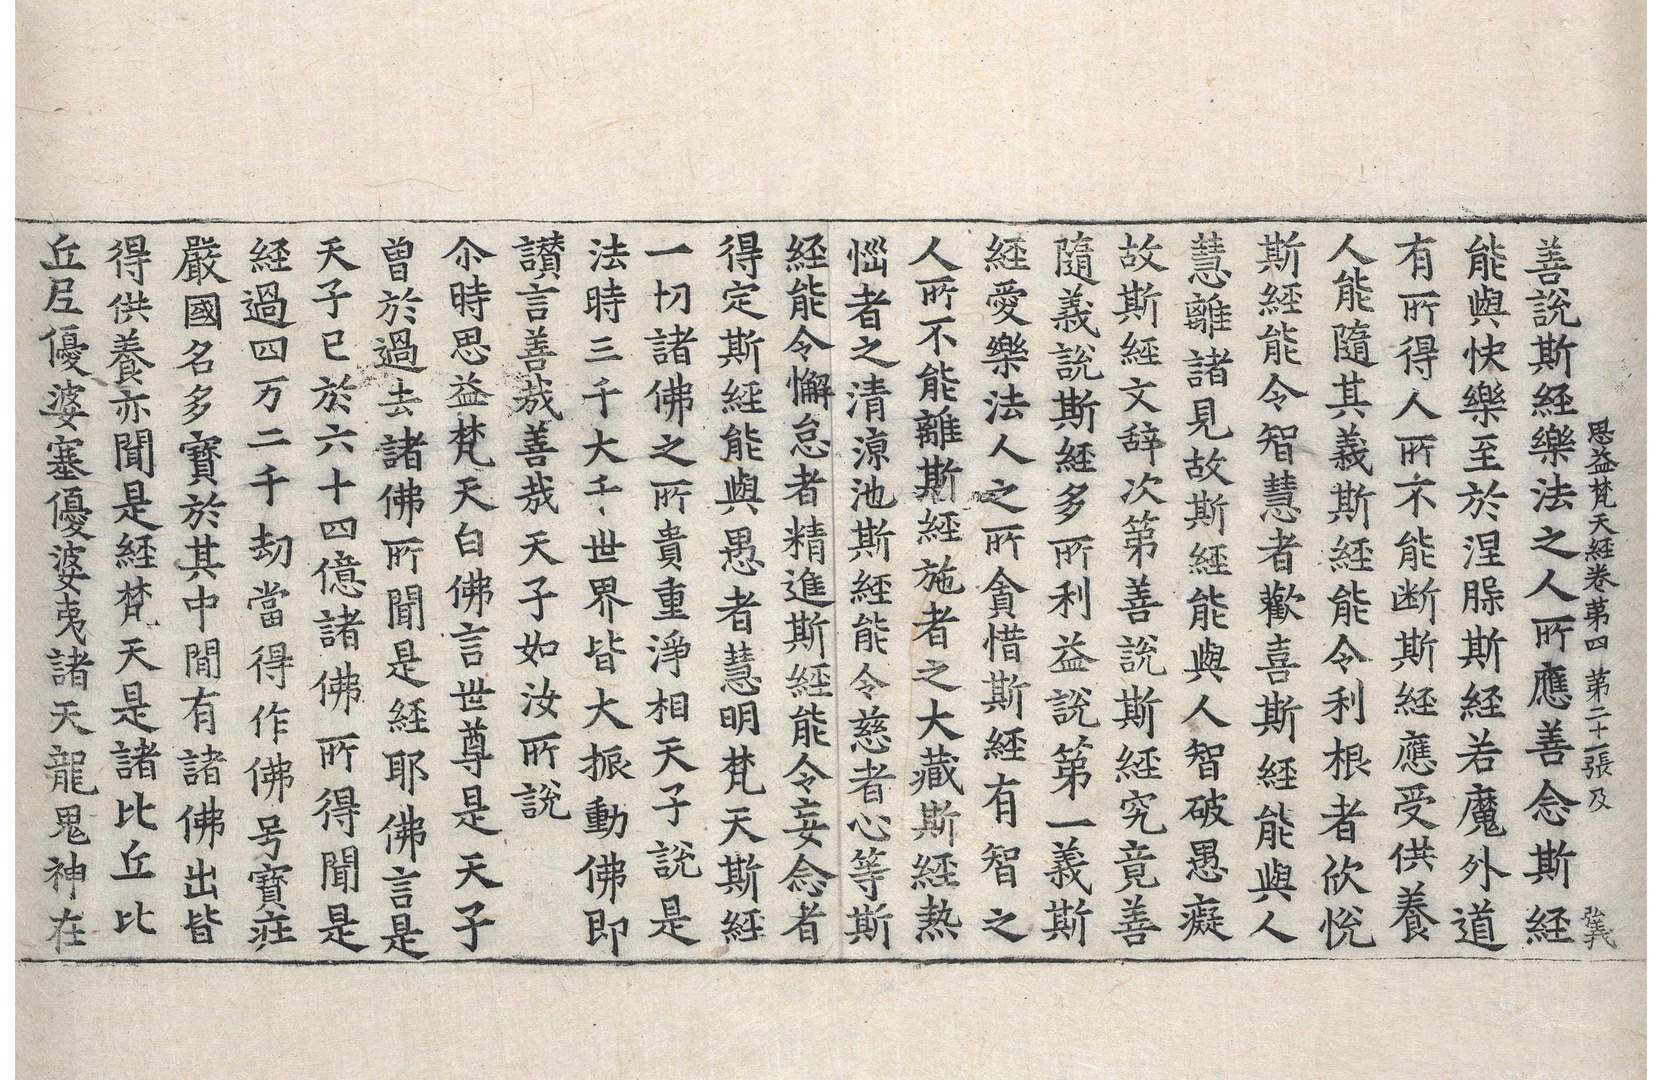 思益梵天經卷第四 第二十一張 及
善說斯經樂法之人所應善念斯經
能與快樂至於涅槃斯經若魔外道
有所得人所不能断斯經應受供養
人能隨其義斯經能令利根者欣悅
斯經能令智慧者歡喜斯經能與人
慧離諸見故斯經能與人智破愚癡
故斯經文辞次第善說斯經究竟善
隨義說斯經多所利益說第一義斯
經愛樂法人之所貪惜斯經有智之
人所不能離斯經施者之大藏斯經熱
惱者之清涼池斯經能令慈者心等斯
經能令懈怠者精進斯經能令妄念者
得定斯經能與愚者慧明梵天斯經
一切諸佛之所貴重淨相天子說是
法時三千大千世界皆大振動佛即
讃言善哉善哉天子如汝所說
尒時思益梵天白佛言世尊是天子
曽於過去諸佛所聞是經耶佛言是
天子已於六十四億諸佛所得聞是
經過四万二千劫當得作佛号寶莊
嚴國名多寶於其中閒有諸佛出皆
得供養亦聞是經梵天是諸比丘比
丘尼優婆塞優婆夷諸天龍鬼神在